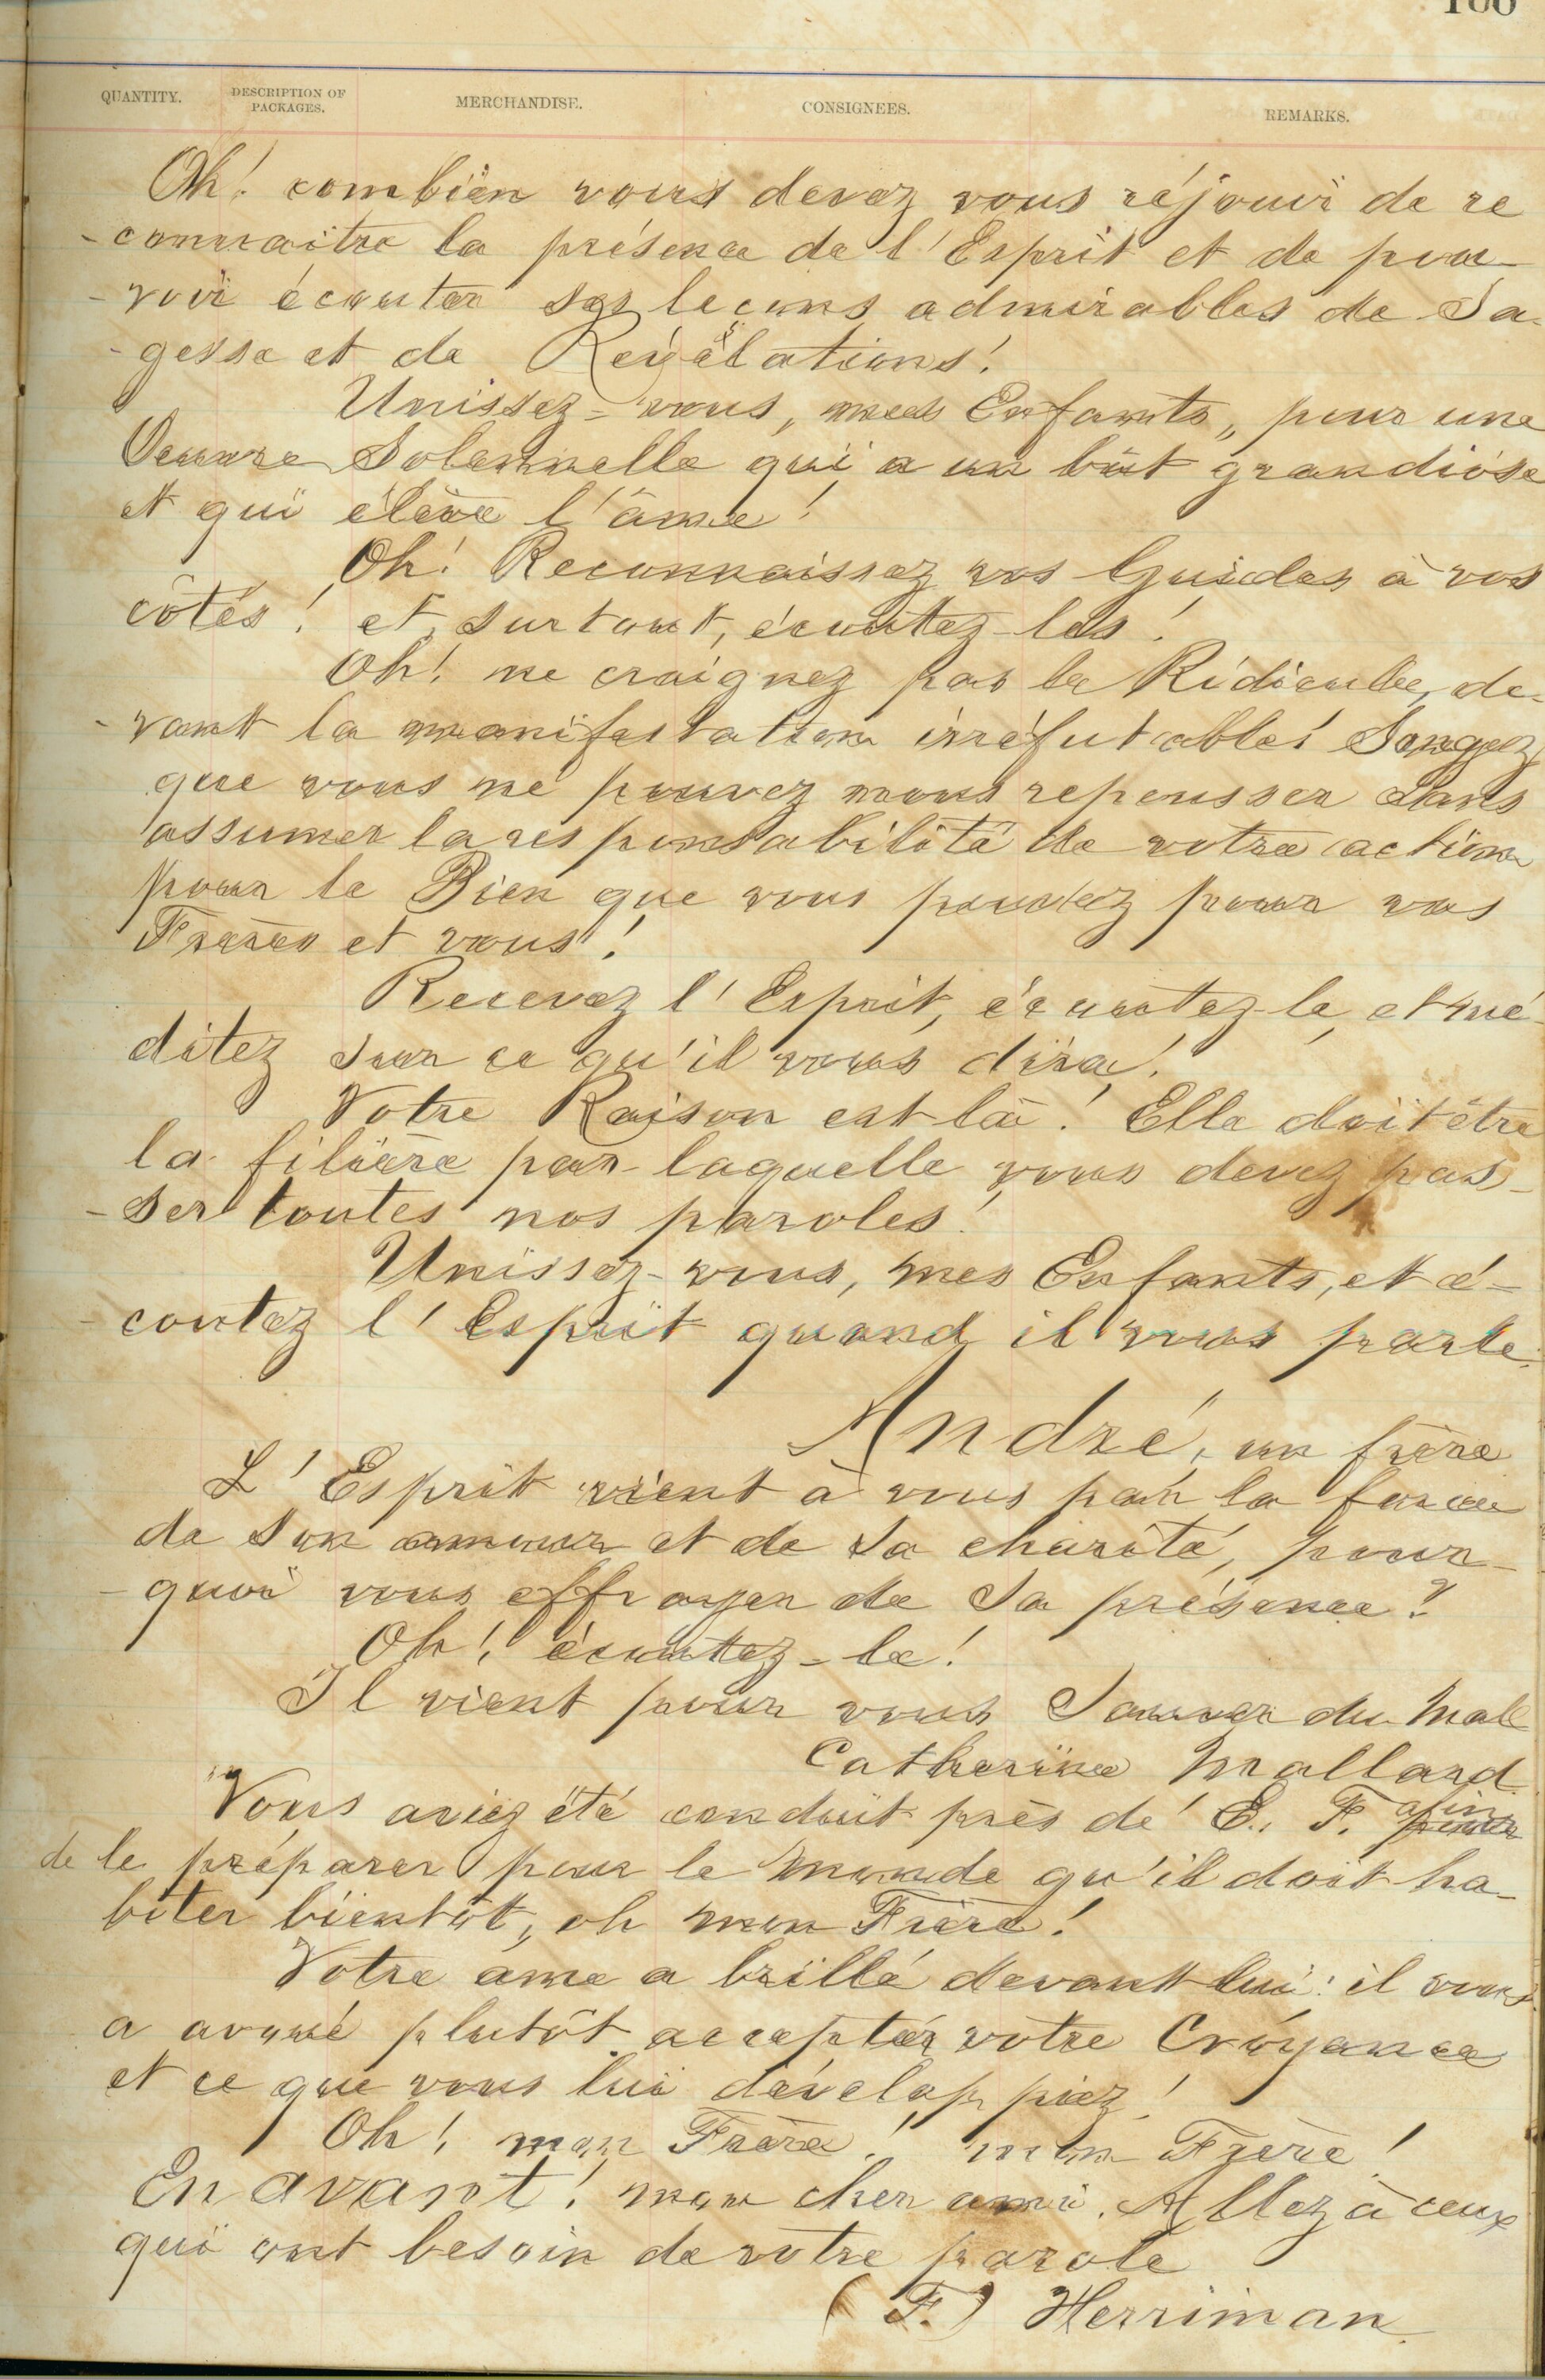 QUANTITY. DESCRIPTION OF PACKAGES. MERCHANDISE. CONSIGNEES. REMARKS.
Oh! combien vous devez vous réjouir de re
-connaitre la présence de l'Esprit et de pou-
-voir écouter ses leçons admirables de Sa-
-gesse et de Révélations!
Unissez-vous, mes Enfants, pour une
Oeuvre Solennelle qui a un bût grandiose
et qui élève l'âme!
Oh! Reconnaissez vos Guides à vos
côtés! et, surtout, écoutez-les!
Oh! ne craignez pas le Ridicule, de-
-vant la manifestation irréfutable! Songez
que vous ne pouvez nous repousser sans
assumer la responsabilité de votre action
pour le Bien que vous pouviez pour vos
Frères et vous!
Recevez l'Esprit, écoutez-le, et mé-
ditez sur ce qu'il vous dira!
Votre Raison est là! Elle doit être
la filière par laquelle vous devez pas-
-ser toutes nos paroles!
Unissez-vous, mes Enfants, et é-
-coutez l'Esprit quand il vous parle.
André, un frère
L'Esprit vient à vous par la force
de son amour et de sa charité, pour-
-quoi vous effrayer de sa présence?
Oh! écoutez-le!
Il vient pour vous Sauver du Mal
Catherine Mallard.
Vous aviez été conduit près de E. F. afin
de le préparer pour le monde qu'il doit ha-
biter bientôt, oh mon Frère!
Votre âme a brillé devant lui: il vous
a avoué plutôt accepter votre Croyance
et ce que vous lui développiez!
Oh! mon Frère! mon Frère!
En avant! mon cher ami. Allez à ceux
qui ont besoin de votre parole
(F.) Herriman.